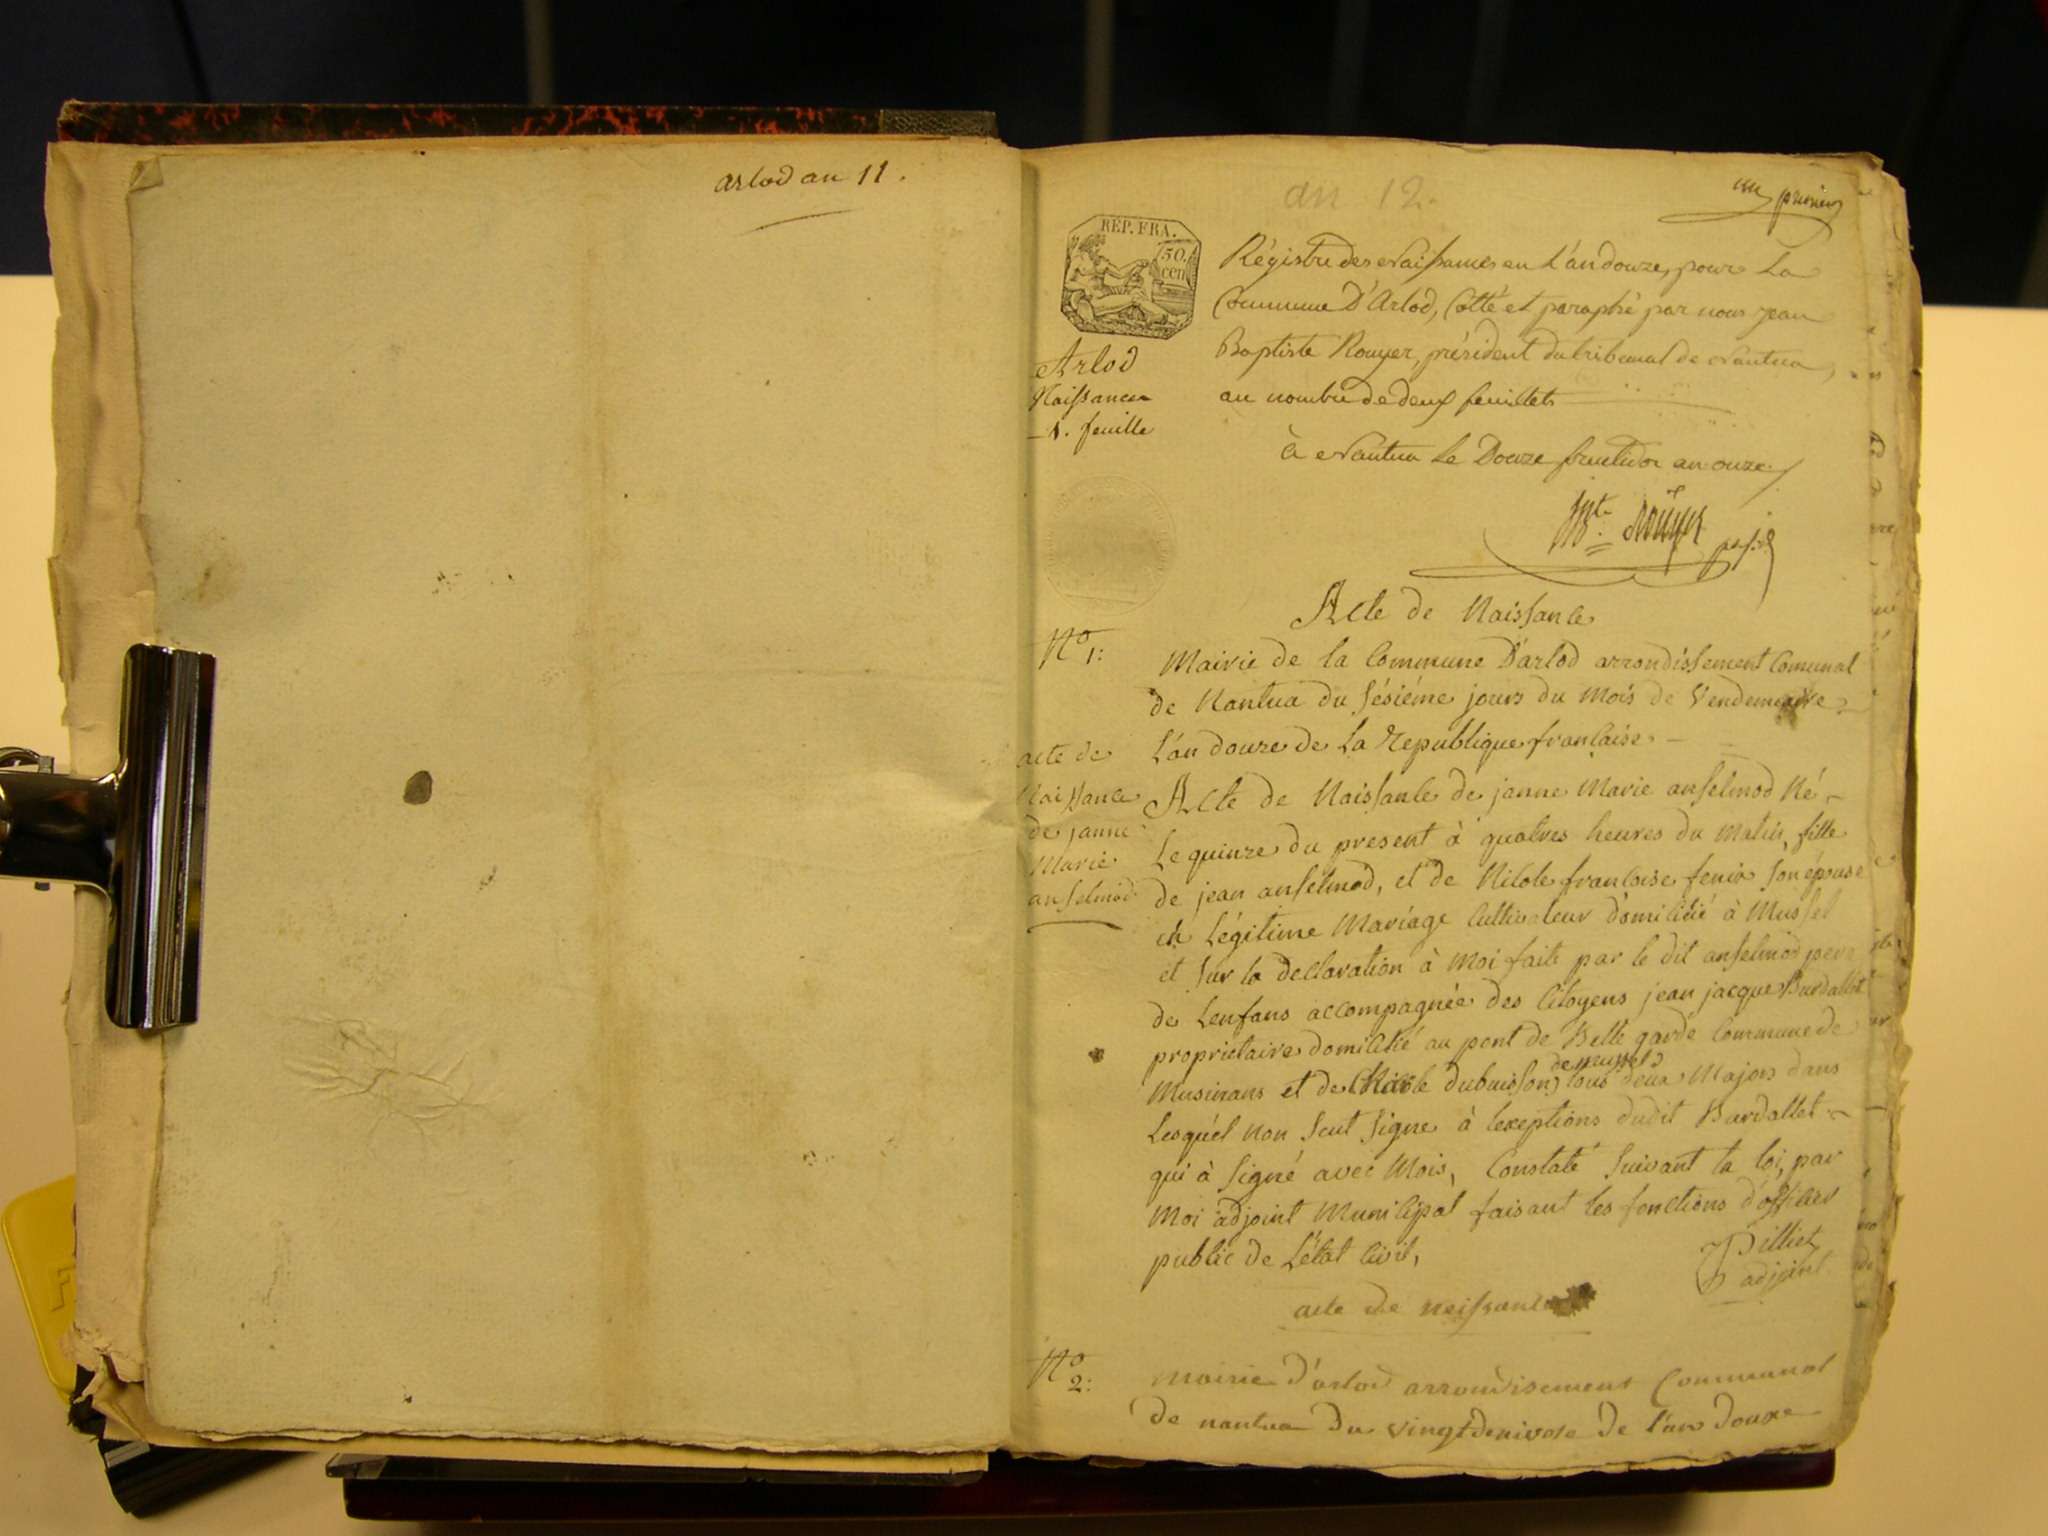 arlod an 11.
an 12.
un premier
REP. FRA.
50.
cen
Régistre des Naissances en L'an douze, pour La
Commune D'Arlod, Cotté et paraphé par nous Jean
Baptiste Rouyer, président du tribunal de Nantua,
au nombre de deux feuillets
Arlod
Naissances
1. feuille
à Nantua Le Douze fructidor an onze
Bte. Rouyer
Acte de Naissance
No 1:
Mairie de la Commune D'arlod arrondissement Comunal
de Nantua du sésiéme jours du Mois de Vendemaire
L'an douze de La Republique francaise
acte de
Naissance
de janne
Marie
anselmod
Acte de Naissance de janne Marie anselmod Né
Le quinze du present à quatres heures du Matin, fille
de jean anselmod, et de Nicole francoise fenix son épouse
en Légitime Mariage Cultivateur domicilié à Mussel
et sur la declaration à Moi faite par le dit anselmod pere
de Lenfans accompagnée des Citoyens jean jacque Burdallet
proprietaire domicilié au pont de Belle garde Commune de
de mussel
Musinans et de Nicole dubuisson, tous deux Majors dans
Lesquél non Seut Signe à lexeptions dudit Burdallet
qui à Signé avec Mois, Constaté Suivant la loi, par
Moi adjoint Municipal faisant les fonctions d'officier
public de L'état Civil,
Pilliet
adjoint
acte de neissance
No 2:
Mairie d'arlod arrondisement Communal
de nantua du vingt de nivose de l'an douxe